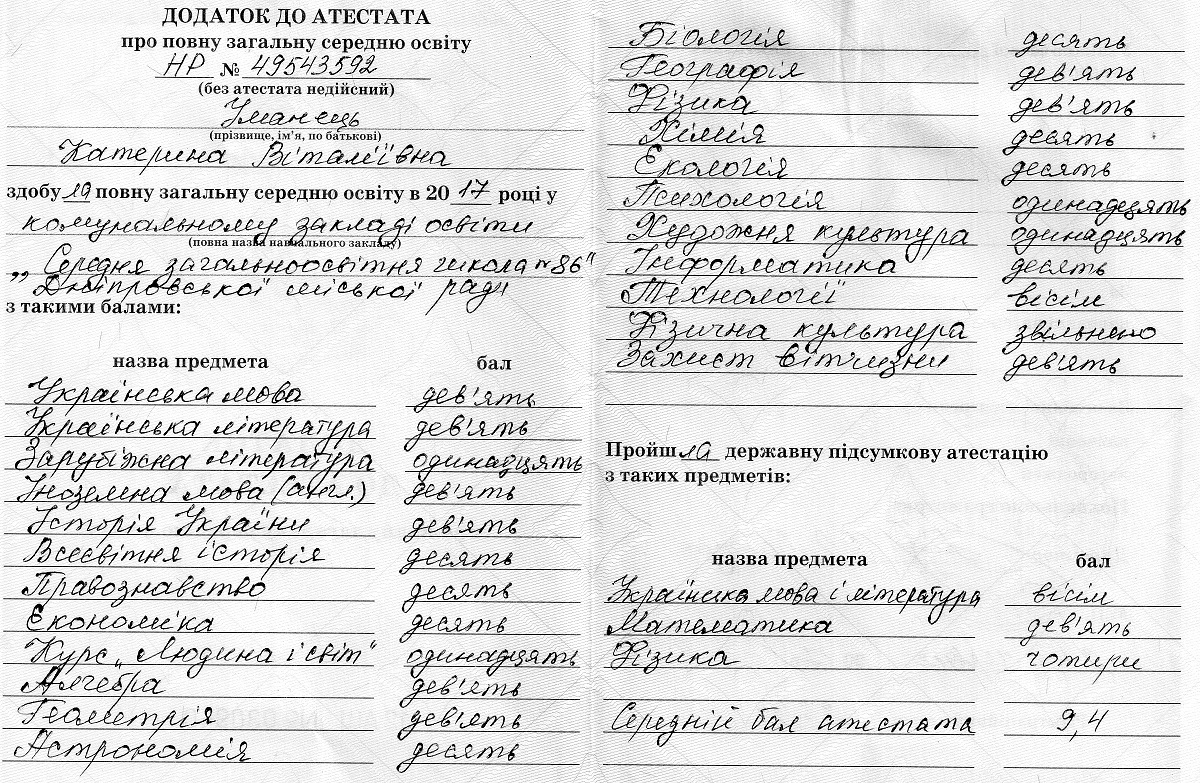 ДОДАТОК ДО АТЕСТАТА
про повну загальну середню освіту
НР № 49543592
(без атестата недійсний)
Уманець
(прізвище, ім'я, по батькові)
Катерина Віталіївна
здобула повну загальну середню освіту в 2017 році у
комунальному закладі освіти
(повна назва навчального закладу)
„Середня загальноосвітня школа №86"
Дніпровської міської ради
з такими балами:
назва предмета бал
Українська мова дев'ять
Українська література дев'ять
Зарубіжна література одинадцять
Іноземна мова (англ.) дев'ять
Історія України дев'ять
Всесвітня історія десять
Правознавство десять
Економіка десять
Курс „Людина і світ" одинадцять
Алгебра дев'ять
Геометрія дев'ять
Астрономія десять
Біологія десять
Географія дев'ять
Фізика дев'ять
Хімія десять
Екологія десять
Психологія одинадцять
Художня культура одинадцять
Інформатика десять
Технології вісім
Фізична культура звільнено
Захист Вітчизни дев'ять
Пройшла державну підсумкову атестацію
з таких предметів:
назва предмета бал
Українська мова і література вісім
Математика дев'ять
Фізика чотири
Середній бал атестата 9,4